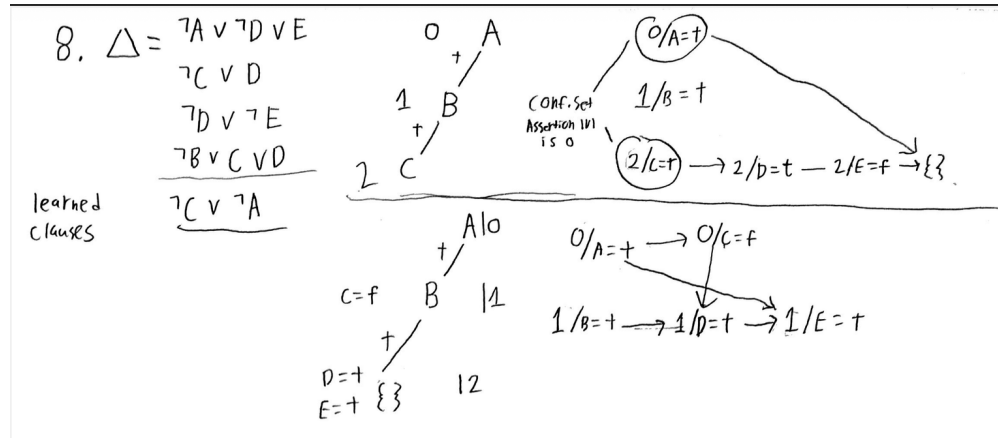 8. Δ = ¬A ∨ ¬D ∨ E
¬C ∨ D
¬D ∨ ¬E
¬B ∨ C ∨ D
learned
clauses
¬C ∨ ¬A
0 A
+
1 B
+
2 C
0/A=t
1/B=t
Conf.set
Assertion lvl
is 0
2/C=t → 2/D=t — 2/E=f → {}
A|0
+
C=f B |1
+
D=t
E=t {} |2
0/A=t → 0/C=f
1/B=t → 1/D=t → 1/E=t